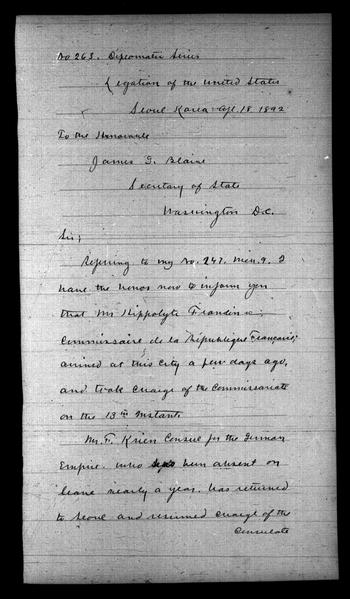 No 263. Diplomatic Series
Legation of the United States
Seoul Korea Apl. 18 1892
To the Honorable
James G. Blaine
Secretary of State
Washington D.C.
Sir;
Refering to my No. 247, Mch. 9. I
have the honor now to inform you
that Mr Hippolyte Frandin
Commissaire de la République Française,
arrived at this city a few days ago,
and took charge of the Commissariate
on the 13th Instant.
Mr. F. Krien Consul for the German
Empire. who has been absent on
leave nearly a year. has returned
to Seoul and resumed charge of the
Consulate